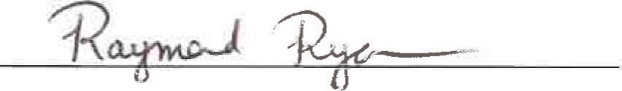 Raymond Ryan